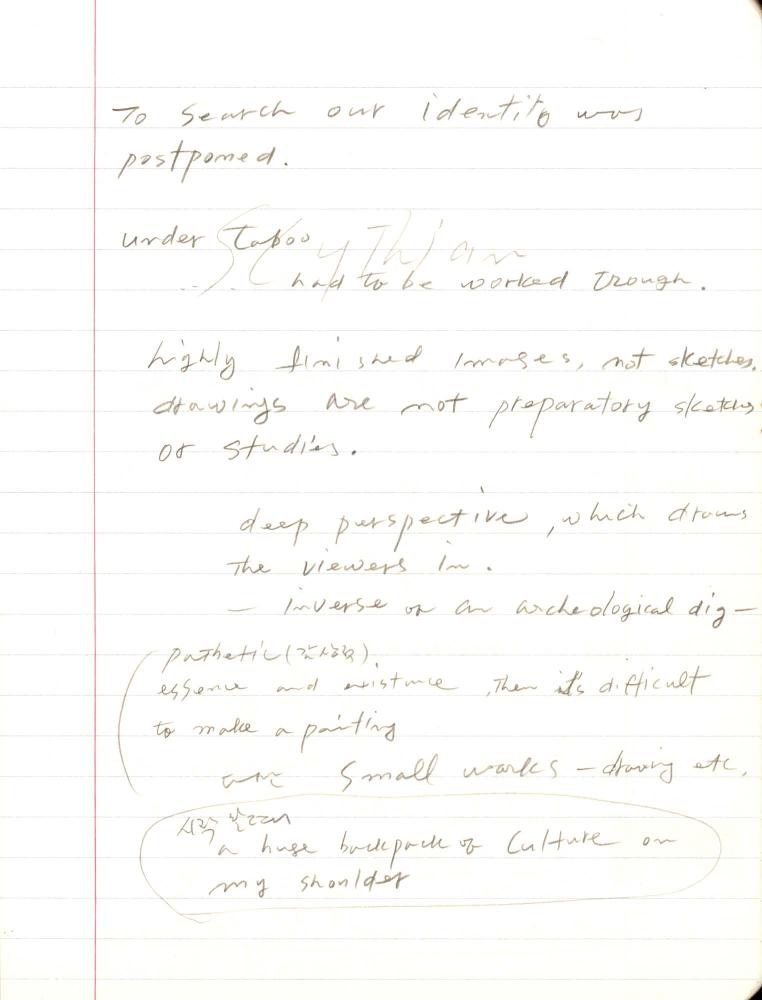 To search our identity was
postponed.
under taboo
Scythian
had to be worked trough.
highly finished images, not sketches.
drawings are not preparatory sketches
or studies.
deep perspective, which draws
the viewers in.
— inverse of an archeological dig —
pathetic (감상적),
essence and existence, then it's difficult
to make a painting
are small works — drawing etc.
시각
a huge backpack of Culture on
my shoulder